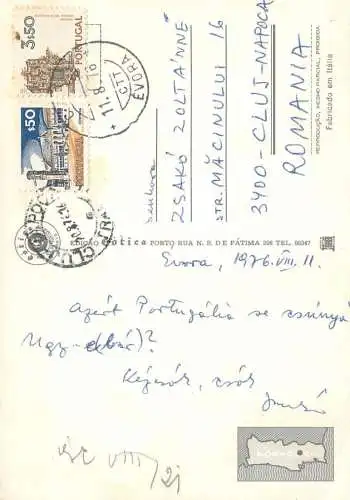 3$50
PORTUGAL
$50
ÉVORA
CTT
11.8.76
Senhora
ZSAKÓ ZOLTÁNNÉ
STR. MĂCINULUI 16
3400-CLUJ-NAPOCA
ROMANIA
REPRODUÇÃO, MESMO PARCIAL, PROIBIDA
Fabricado em Itália
EDIÇÃO Gótica PORTO RUA N. S. DE FÁTIMA TEL.
Evora, 1976.VIII.11.
Azért Portugália se csúnya
Ugy-e
Kézcsók, csók
VIII/21